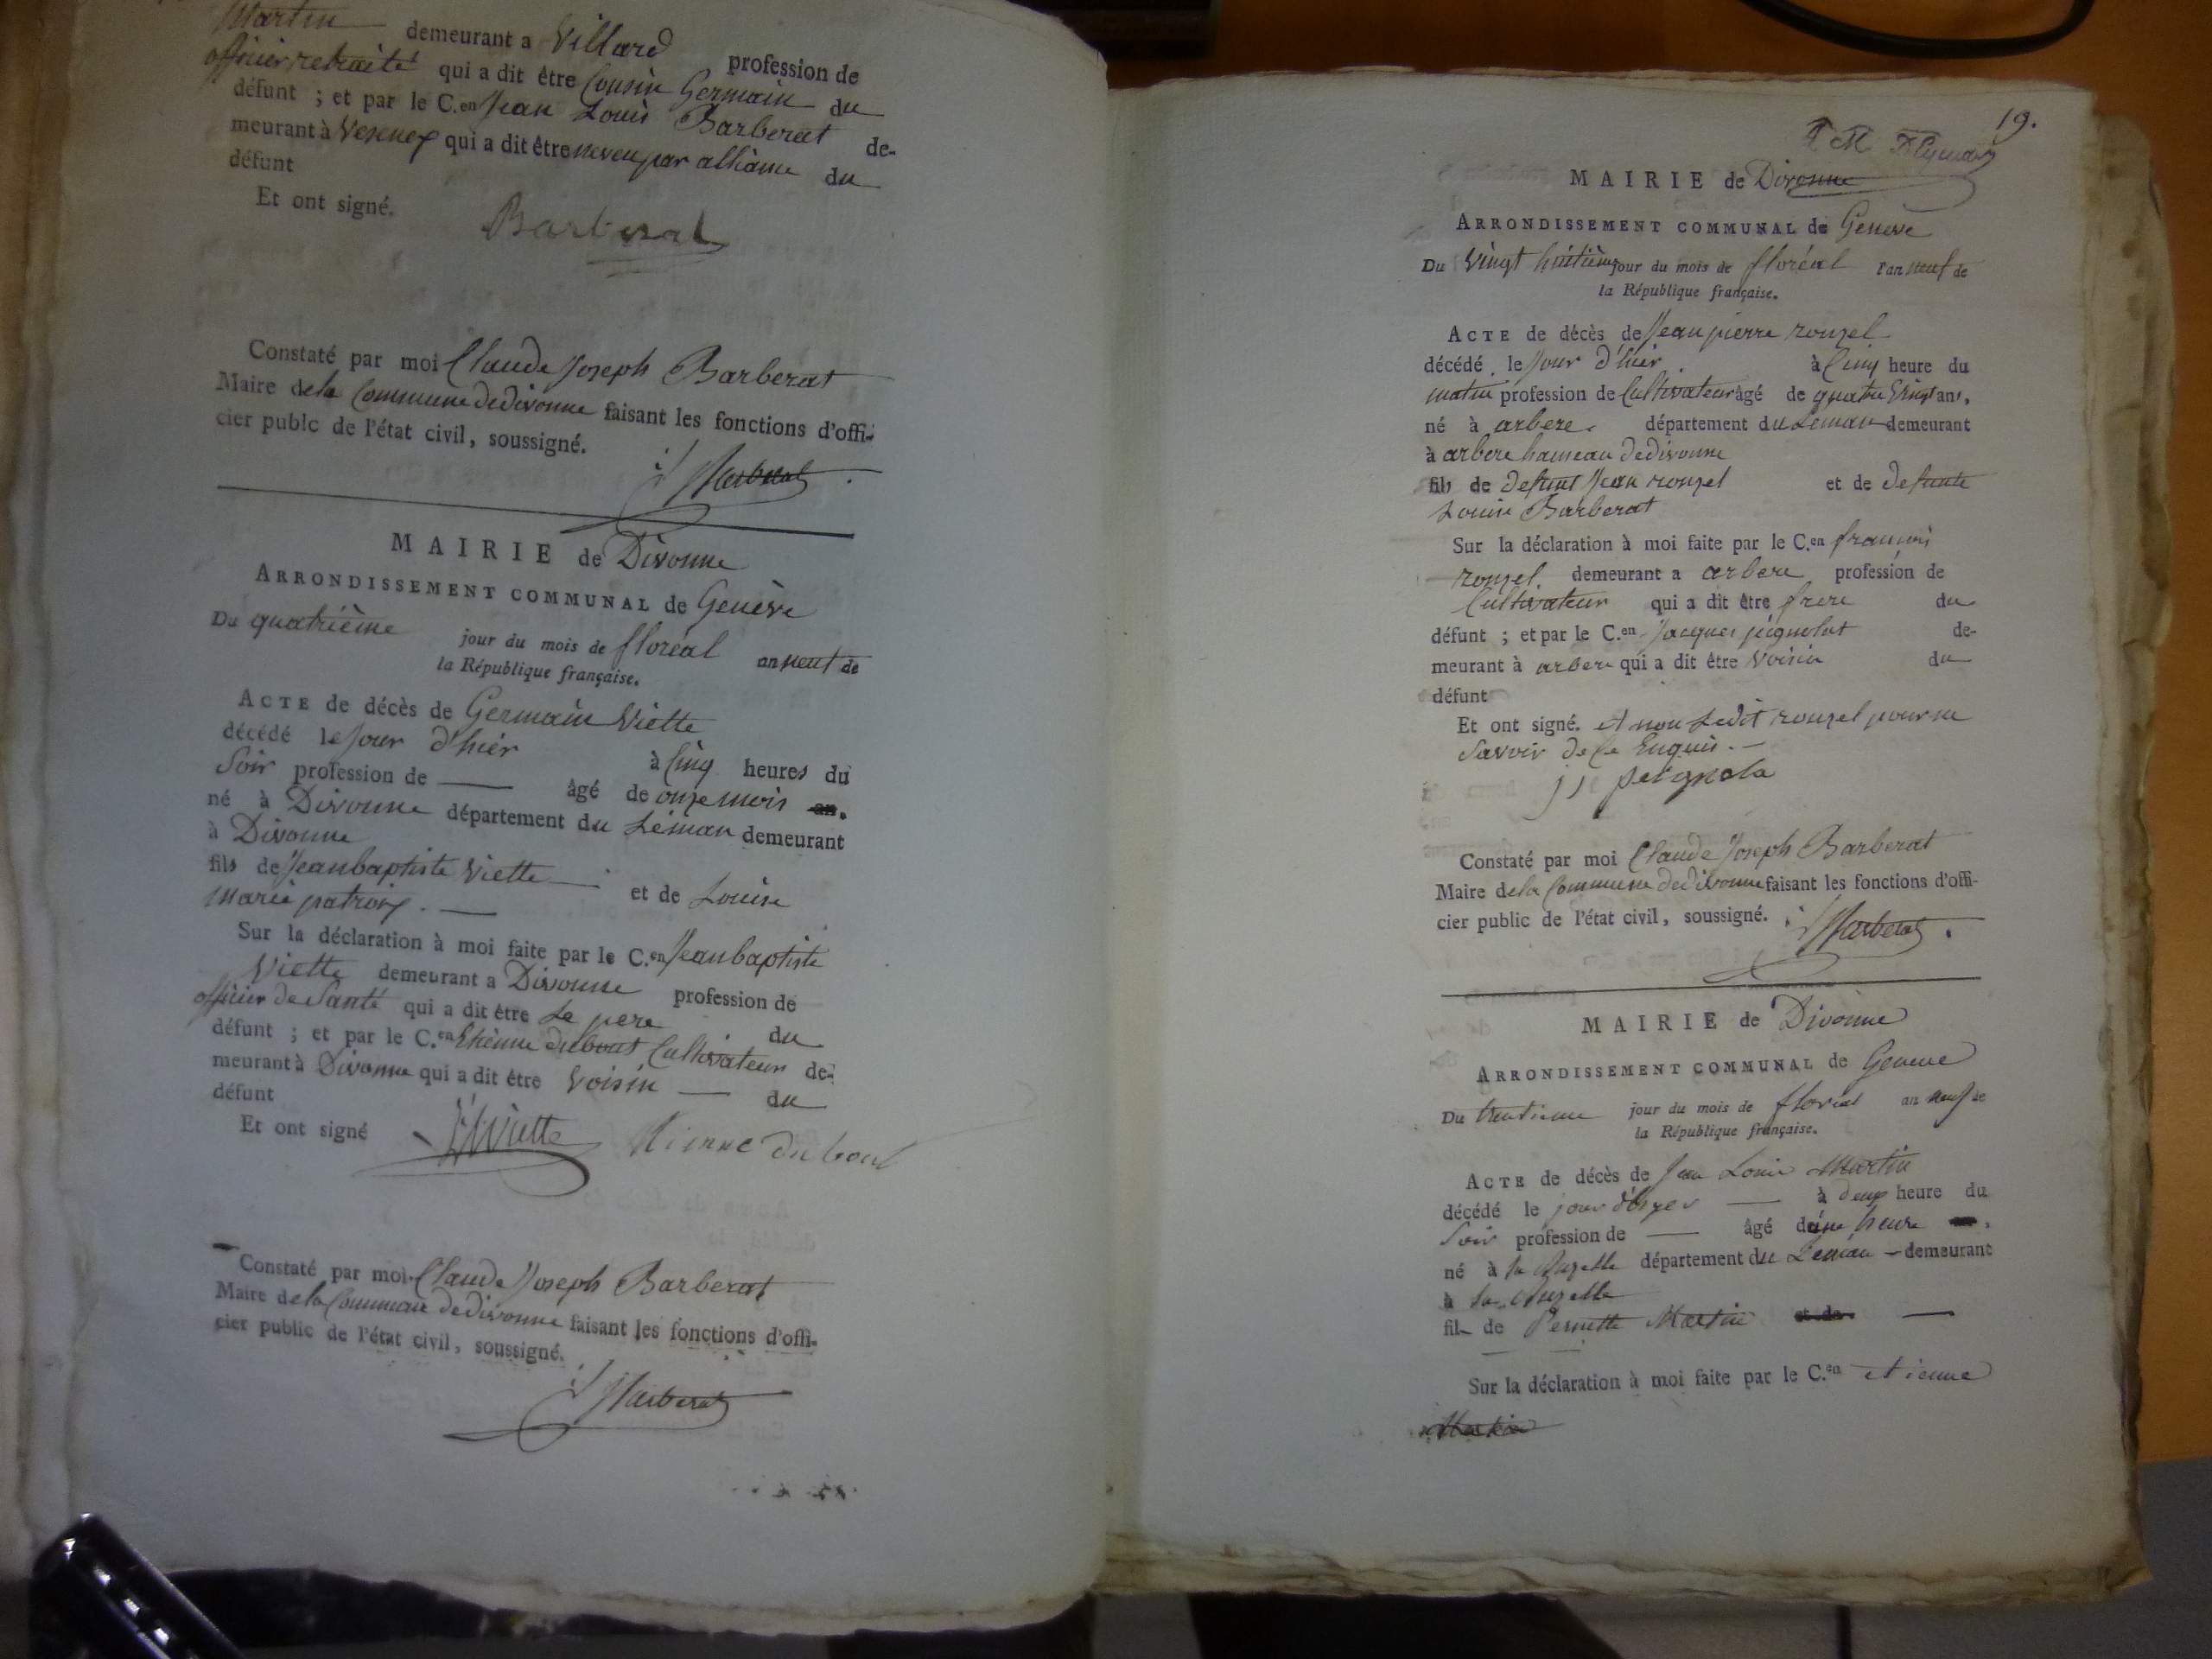 Martin demeurant a Villard profession de
officier retraité qui a dit être Cousin Germain du
défunt ; et par le C.en Jean Louis Barberat de-
meurant à Vesenex qui a dit être neveu par alliance du
défunt
Et ont signé.
Barberat
Constaté par moi Claude Joseph Barberat
Maire de la Commune de divonne faisant les fonctions d'offi-
cier publc de l'état civil, soussigné.
Barberat
MAIRIE de Divonne
ARRONDISSEMENT COMMUNAL de Genève
Du quatrième jour du mois de floréal an neuf de
la République française.
ACTE de décès de Germain Viette
décédé le Jour d'hiér à Cinq heures du
Soir profession de — âgé de onze mois an.
né à Divonne département du Léman demeurant
à Divonne
fils de Jeanbaptiste Viette et de Louise
Marie patroix.
Sur la déclaration à moi faite par le C.en Jeanbaptiste
Viette demeurant a Divonne profession de
officier de Santé qui a dit être Le pere du
défunt ; et par le C.en Etienne dubout Cultivateur de-
meurant à Divonne qui a dit être Voisin — du
défunt
Et ont signé
Viette Etienne du bout
Constaté par moi Claude Joseph Barberat
Maire de la Commune de divonne faisant les fonctions d'offi-
cier public de l'état civil, soussigné.
Barberat
19.
MAIRIE de Divonne
ARRONDISSEMENT COMMUNAL de Genève
Du Vingt huitième jour du mois de floréal l'an neuf de
la République française.
ACTE de décès de Jean pierre rouzel
décédé le Jour d'hier à Cinq heure du
matin profession de Cultivateur âgé de quatre Vingt ans,
né à arbere département du Leman demeurant
à arbere hameau de divonne
fils de defunt Jean rouzel et de defunte
Louise Barberat
Sur la déclaration à moi faite par le C.en francois
rouzel demeurant a arbere profession de
Cultivateur qui a dit être frere du
défunt ; et par le C.en Jacques pignolat de-
meurant à arbere qui a dit être Voisin du
défunt
Et ont signé. et non Ledit rouzel pour ne
Savoir de ce Enquis.
JJ peignola
Constaté par moi Claude Joseph Barberat
Maire de la Commune de divonne faisant les fonctions d'offi-
cier public de l'état civil, soussigné.
Barberat
MAIRIE de Divonne
ARRONDISSEMENT COMMUNAL de Geneve
Du trentieme jour du mois de floréal an neuf de
la République française.
ACTE de décès de Jean Louis Martin
décédé le jour d'hyer — à deux heure du
Soir profession de — âgé d'une heure
né à la département du Leman — demeurant
à la
fils de Pernette Martin et de —
Sur la déclaration à moi faite par le C.en etienne
Martin